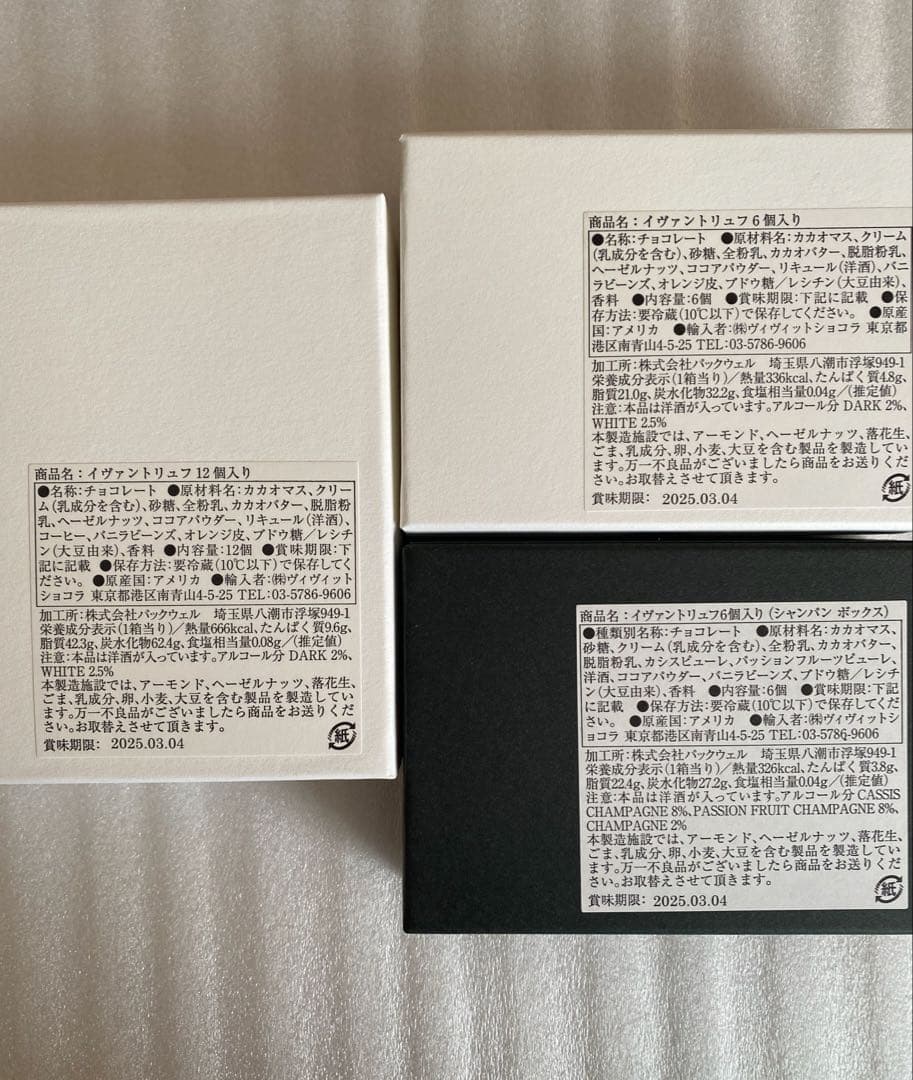 商品名：イヴァントリュフ 12 個入り
●名称：チョコレート　●原材料名：カカオマス、クリー
ム（乳成分を含む）、砂糖、全粉乳、カカオバター、脱脂粉
乳、ヘーゼルナッツ、ココアパウダー、リキュール（洋酒）、
コーヒー、バニラビーンズ、オレンジ皮、ブドウ糖／レシチ
ン（大豆由来）、香料　●内容量：12個　●賞味期限：下
記に記載　●保存方法：要冷蔵（10℃以下）で保存してくだ
さい。　●原産国：アメリカ　●輸入者：㈱ヴィヴィット
ショコラ 東京都港区南青山4-5-25 TEL：03-5786-9606
加工所：株式会社パックウェル　埼玉県八潮市浮塚949-1
栄養成分表示（1箱当り）／熱量666kcal、たんぱく質9.6g、
脂質42.3g、炭水化物62.4g、食塩相当量0.08g／（推定値）
注意：本品は洋酒が入っています。アルコール分 DARK 2%、
WHITE 2.5%
本製造施設では、アーモンド、ヘーゼルナッツ、落花生、
ごま、乳成分、卵、小麦、大豆を含む製品を製造してい
ます。万一不良品がございましたら商品をお送りくだ
さい。お取替えさせて頂きます。
賞味期限：　2025.03.04
紙
商品名：イヴァントリュフ 6 個入り
●名称：チョコレート　●原材料名：カカオマス、クリーム
（乳成分を含む）、砂糖、全粉乳、カカオバター、脱脂粉乳、
ヘーゼルナッツ、ココアパウダー、リキュール（洋酒）、バニ
ラビーンズ、オレンジ皮、ブドウ糖／レシチン（大豆由来）、
香料　●内容量：6個　●賞味期限：下記に記載　●保
存方法：要冷蔵（10℃以下）で保存してください。　●原産
国：アメリカ　●輸入者：㈱ヴィヴィットショコラ 東京都
港区南青山4-5-25 TEL：03-5786-9606
加工所：株式会社パックウェル　埼玉県八潮市浮塚949-1
栄養成分表示（1箱当り）／熱量336kcal、たんぱく質4.8g、
脂質21.0g、炭水化物32.2g、食塩相当量0.04g／（推定値）
注意：本品は洋酒が入っています。アルコール分 DARK 2%、
WHITE 2.5%
本製造施設では、アーモンド、ヘーゼルナッツ、落花生、
ごま、乳成分、卵、小麦、大豆を含む製品を製造してい
ます。万一不良品がございましたら商品をお送りくだ
さい。お取替えさせて頂きます。
賞味期限：　2025.03.04
紙
商品名：イヴァントリュフ6個入り（シャンパン ボックス）
●種類別名称：チョコレート　●原材料名：カカオマス、
砂糖、クリーム（乳成分を含む）、全粉乳、カカオバター、
脱脂粉乳、カシスピューレ、パッションフルーツピューレ、
洋酒、ココアパウダー、バニラビーンズ、ブドウ糖／レシチ
ン（大豆由来）、香料　●内容量：6個　●賞味期限：下記
に記載　●保存方法：要冷蔵（10℃以下）で保存してくださ
い。　●原産国：アメリカ　●輸入者：㈱ヴィヴィットシ
ョコラ 東京都港区南青山4-5-25 TEL：03-5786-9606
加工所：株式会社パックウェル　埼玉県八潮市浮塚949-1
栄養成分表示（1箱当り）／熱量326kcal、たんぱく質3.8g、
脂質22.4g、炭水化物27.2g、食塩相当量0.04g／（推定値）
注意：本品は洋酒が入っています。アルコール分 CASSIS
CHAMPAGNE 8%、PASSION FRUIT CHAMPAGNE 8%、
CHAMPAGNE 2%
本製造施設では、アーモンド、ヘーゼルナッツ、落花生、
ごま、乳成分、卵、小麦、大豆を含む製品を製造していま
す。万一不良品がございましたら商品をお送りくだ
さい。お取替えさせて頂きます。
賞味期限：　2025.03.04
紙